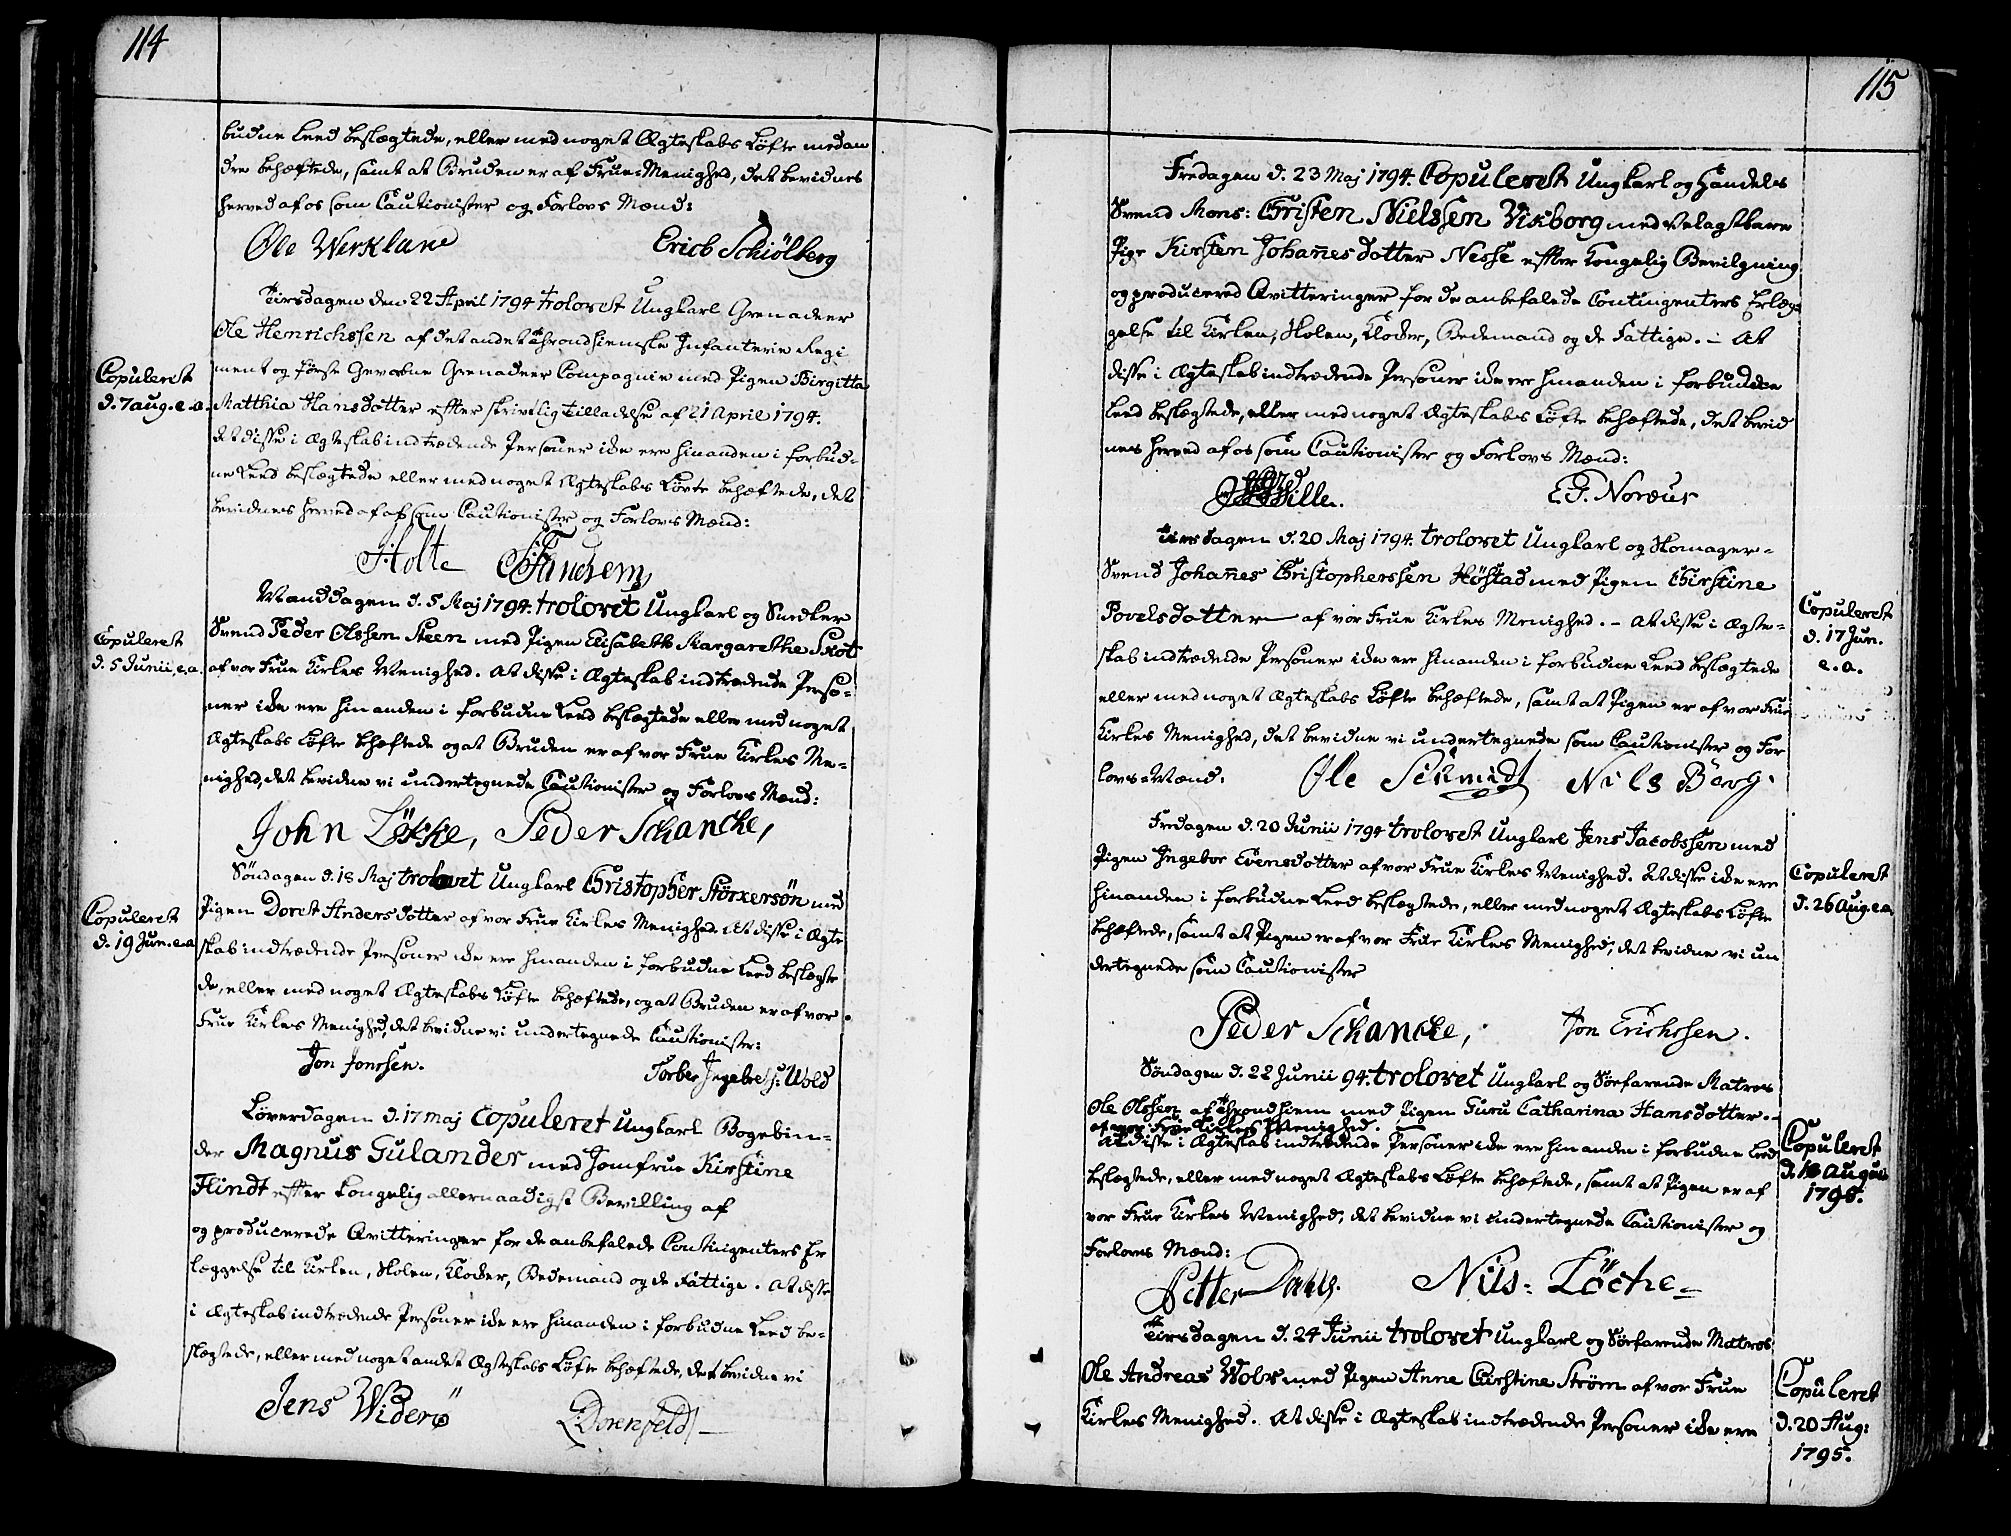 114
budne Leed beslægtede, eller med noget Ægteskabs Løfte med an
dre behæftede, samt at Bruden er af Frue Menighed, det bevidnes
herved af os som Cautionister og Forlovs Mænd:
Ole Werklane Erich Schiölberg
Tirsdagen den 22 April 1794 trolovet Ungkarl Grenadeer
Ole Henrichssen af det andet Throndhiemske Infanterie Regi
ment og første Gevorbne Grenadeer Compagnie med Pigen Birgitta
Copuleret
d. 7 aug. e.a.
Matthia Hansdotter efter skrivtlig tilladelse af 21 April 1794.
At disse i Ægteskab indtrædende Personer ikke ere hinanden i forbud-
ne Leed beslægtede eller med noget Ægteskabs Løvte behæftede, det
bevidnes herved af os som Cautionister og Forlovs Mænd:
Holte
Manddagen d. 5 Maj 1794. trolovet Ungkarl og Snedker
Svend Peder Olssen Steen med Pigen Elisabeth Margarethe Skot
Copuleret
d. 5 Junii, e.a.
af vor Frue Kirkes Menighed. At disse i Ægteskab indtrædende Perso-
ner ikke ere hinanden i forbudne Leed beslægtede eller med noget
Ægteskabs Løfte behæftede og at Bruden er af vor Frue Kirkes Me-
nighed, det bevidne vi undertegnede Cautionister og Forlovs Mænd:
John Løkke, Peder Schancke,
Søndagen d. 18 Maj trolovet Ungkarl Christopher Størkersøn med
Copuleret
d. 19 Jun. e.a.
Pigen Doret Andersdotter af vor Frue Kirkes Menighed. At disse i Ægte
skab indtrædende Personer ikke ere hinanden i forbudne Leed beslægte
de, eller med noget Ægteskabs Løfte behæftede, og at Bruden er af vor
Frue Kirkes Menighed, det bevidne vi undertegnede Cautionister:
Jon Jonssen. Torber Ingebretz: Wold
Løverdagen d. 17 maj Copuleret Ungkarl Bogebin-
der Magnus Gulander med Jomfrue Kirstine
Flindt efter kongelig allernaadigst Bevilling af
og producerede Qvitteringer for de anbefalede Contingenters Er
læggelse til Kirken, Skolen, Klocker, Bedemand og de Fattige. At disse
i Ægteskab indtrædende Personer ikke ere hinanden i forbudne Leed be-
slægtede, eller med noget andet Ægteskabs Løfte behæftede, det bevidne vi
Jens Widerö Dorenfeldt
115
Fredagen d. 23 Maj 1794. Copuleret Ungkarl og Handels
Svend Mons: Christen Nielssen Vikborg med velagtbare
Pige Kirsten Johañesdotter Nesse efter Kongelig Bevilgning
og producered Qvitteringer for de anbefalede Contingenters Erlæg-
gelse til Kirken, Skolen, Klocker, Bedemand og de Fattige. – At
disse i Ægteskab indtrædende Personer ikke ere hinanden i forbudne
Leed beslægtede, eller med noget Ægteskabs Løfte behæftede, det bevid
nes herved af os som Cautionister og Forlovs Mænd:
Hille. E. J. Noræus
Tirsdagen d. 20 Maj 1794. trolovet Ungkarl og Skomager-
Svend Johañes Christopherssen Høstad med Pigen Chirstine
Povelsdotter af vor Frue Kirkes Menighed. – At disse i Ægte-
Copuleret
d. 17 Jun.
e.a.
skab indtrædende Personer ikke ere hinanden i forbudne Leed beslægtede
eller med noget Ægteskabs Løfte behæftede, samt at Pigen er af vor Frue
Kirkes Menighed, det bevidne vi undertegnede som Cautionister og For
lovs Mænd. Ole Schmidt Nils Berg.
Fredagen d. 20 Junii 1794 trolovet Ungkarl Jens Jacobssen med
Pigen Ingebor Evensdotter af vor Frue Kirkes Menighed. At disse ikke ere
Copuleret
d. 26 Aug. e.a.
hinanden i forbudne Leed beslægtede, eller med noget Ægteskabs Løfte
behæftede, samt at Pigen er af vor Frue Kirkes Menighed, det bevidne vi un
dertegnede som Cautionister
Peder Schancke, Jon Erichssen.
Søndagen d. 22 Junii 94. trolovet Ungkarl og Søefarende Matros
Ole Olssen af Throndhiem med Pigen Guru Catharina Hansdotter.–
af vor Frue Kirkes Menighed.
At disse i Ægteskab indtrædende Personer ikke ere hinanden i forbudne Leed
Copuleret
d. 18 August
1795.
beslægtede, eller med noget Ægteskabs Løfte behæftede, samt at Pigen er af
vor Frue Kirkes Menighed, det bevidne vi undertegnede Cautionister og
Forlovs Mænd:
Petter Dahls. Nils: Löcke
Tirsdagen d. 24 Junii trolovet Ungkarl og Søefarende Matros
Ole Andreas Wobs med Pigen Anne Chirstine Strøm af vor Frue
Copuleret
d. 20 Aug:
1795.
Kirkes Menighed. At disse i Ægteskab indtrædende Personer ikke ere